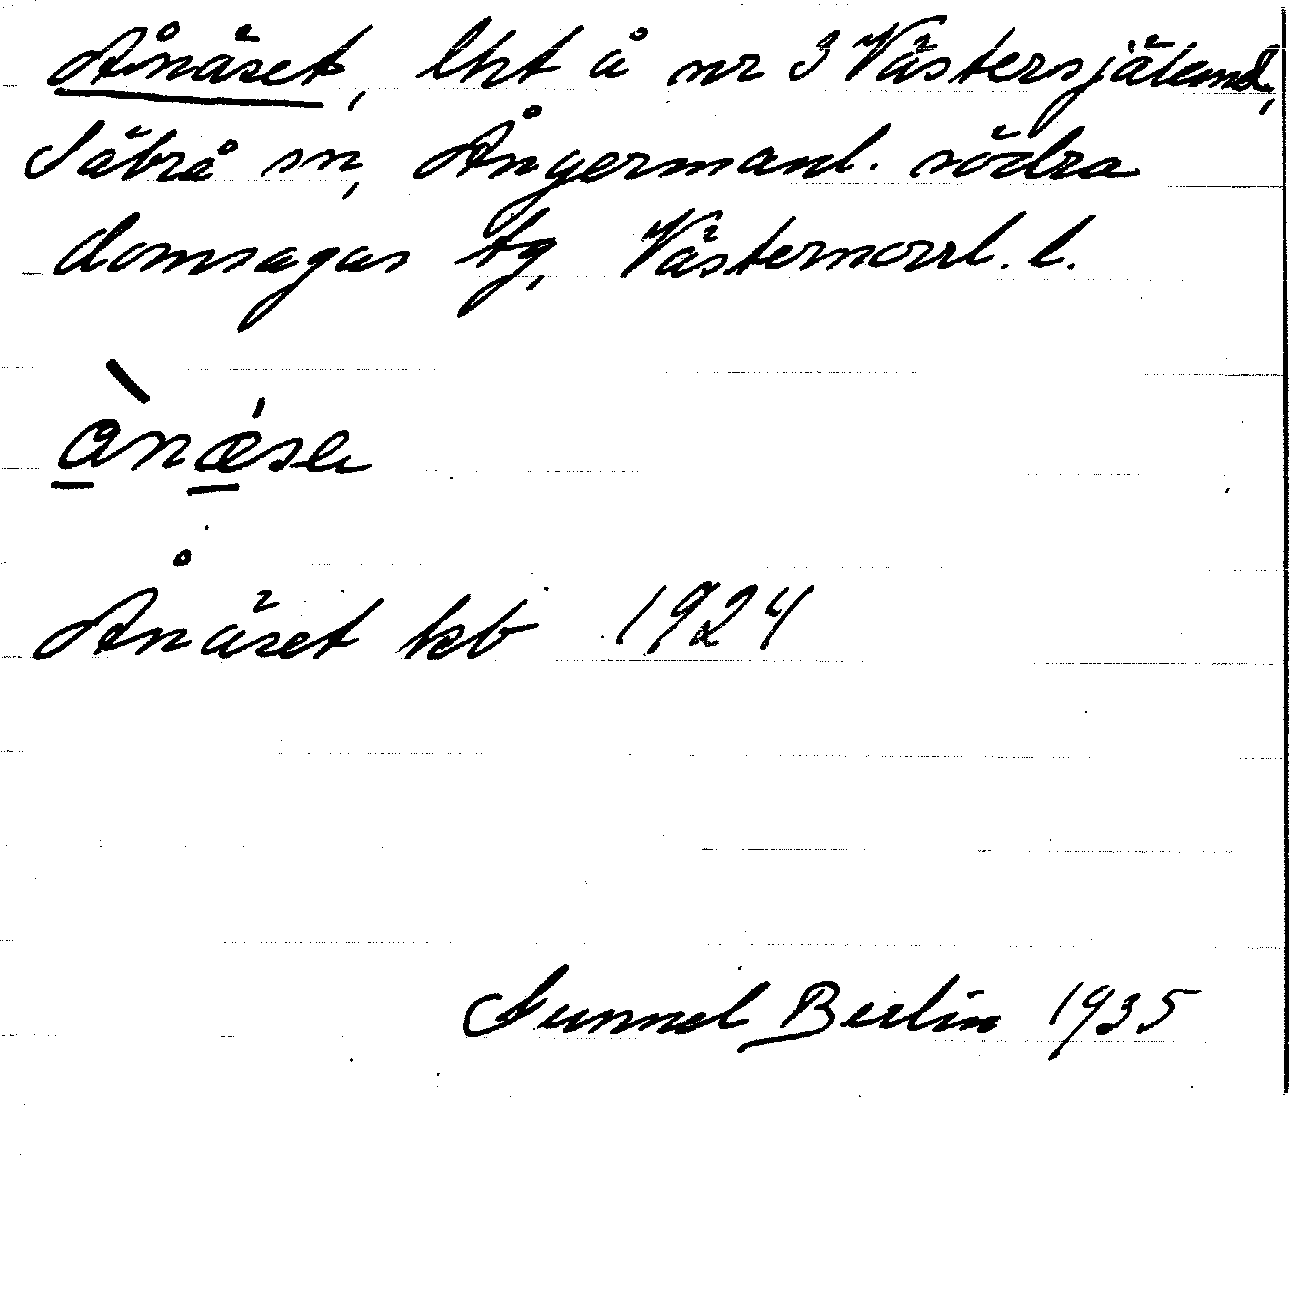 Ånäset, lht å nr 3 Västersjäland,
Säbrå sn, Ångermanl. södra
domsagas tg, Västernorrl. l.
ànǽsa
Ånäset kb 1924
Gunnel Berlin 1935